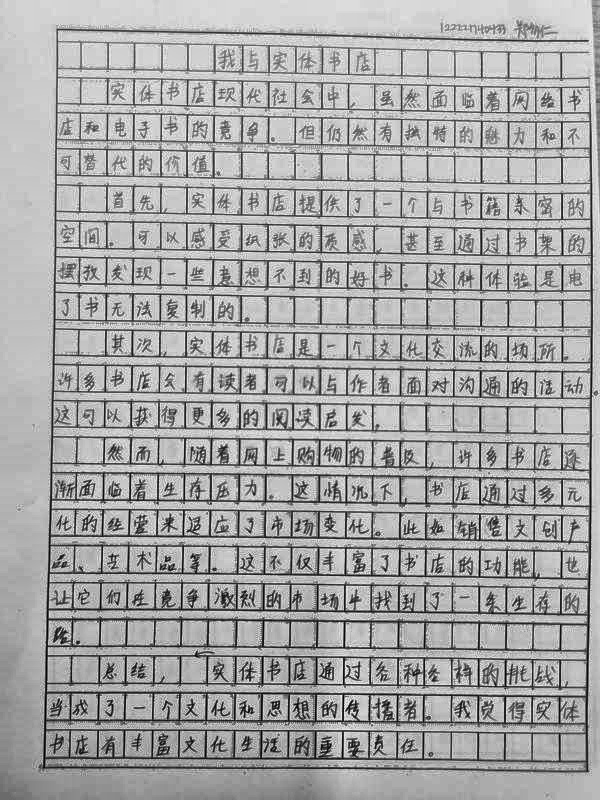 我与实体书店
实体书店现代社会中，虽然面临着网络书
店和电子书的竞争。但仍然有独特的魅力和不
可替代的价值。
首先，实体书店提供了一个与书籍亲密的
空间。可以感受纸张的质感，甚至通过书架的
摆放发现一些意想不到的好书。这种体验是电
了书无法复制的。
其次，实体书店是一个文化交流的场所。
许多书店会有读者可以与作者面对沟通的活动。
这可以获得更多的阅读启发。
然而，随着网上购物的普及，许多书店逐
渐面临着生存压力。这情况下，书店通过多元
化的经营来适应了市场变化。此如销售文创产
品、艺术品等。这不仅丰富了书店的功能，也
让它们在竞争激烈的市场中找到了一条生存的
路。
总结，实体书店通过各种各样的挑战，
当成了一个文化和思想的传播者。我觉得实体
书店有丰富文化生活的重要责任。